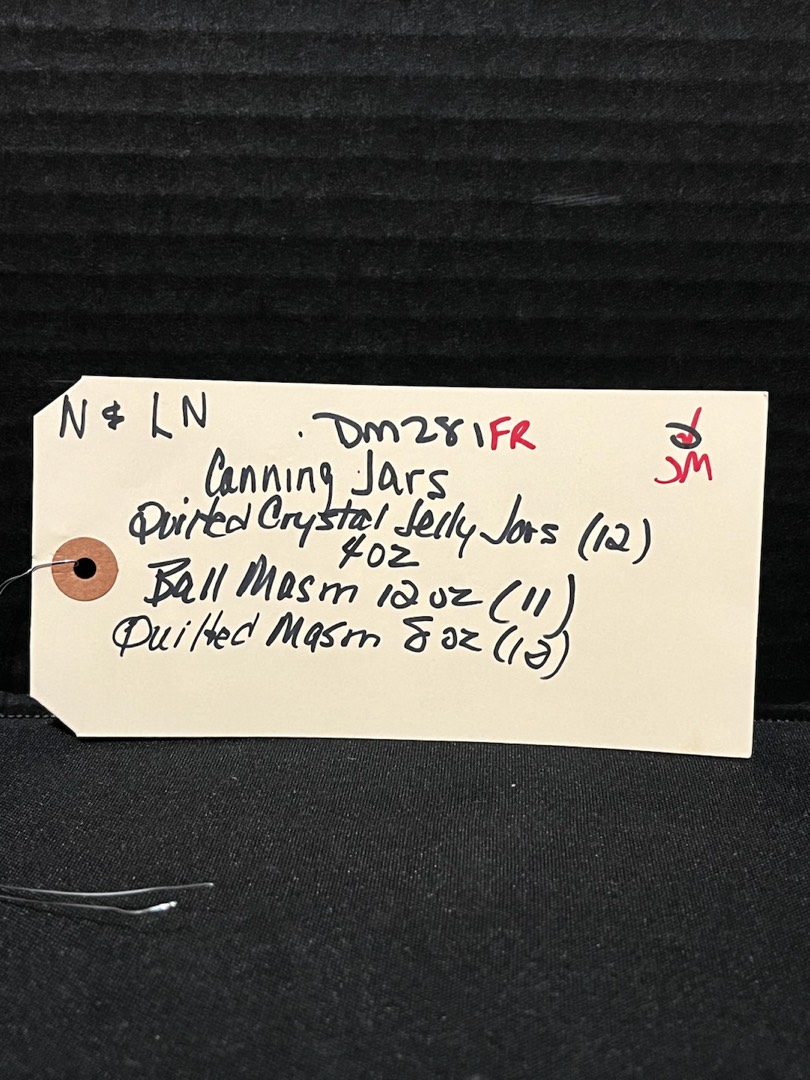 N & LN
DM281FR
JM
Canning Jars
Quilted Crystal Jelly Jars (12)
4oz
Ball Mason 12 oz (11)
Quilted Mason 8 oz (12)